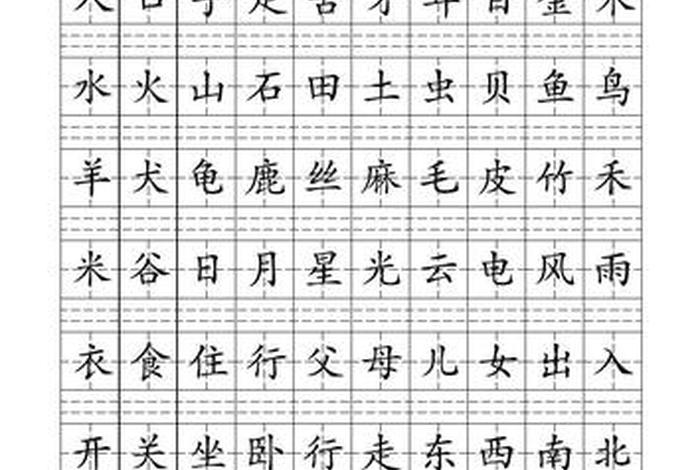 水火山石田土虫贝鱼鸟
羊犬龟鹿丝麻毛皮竹禾
米谷日月星光云电风雨
衣食住行父母儿女出入
开关坐卧行走东西南北